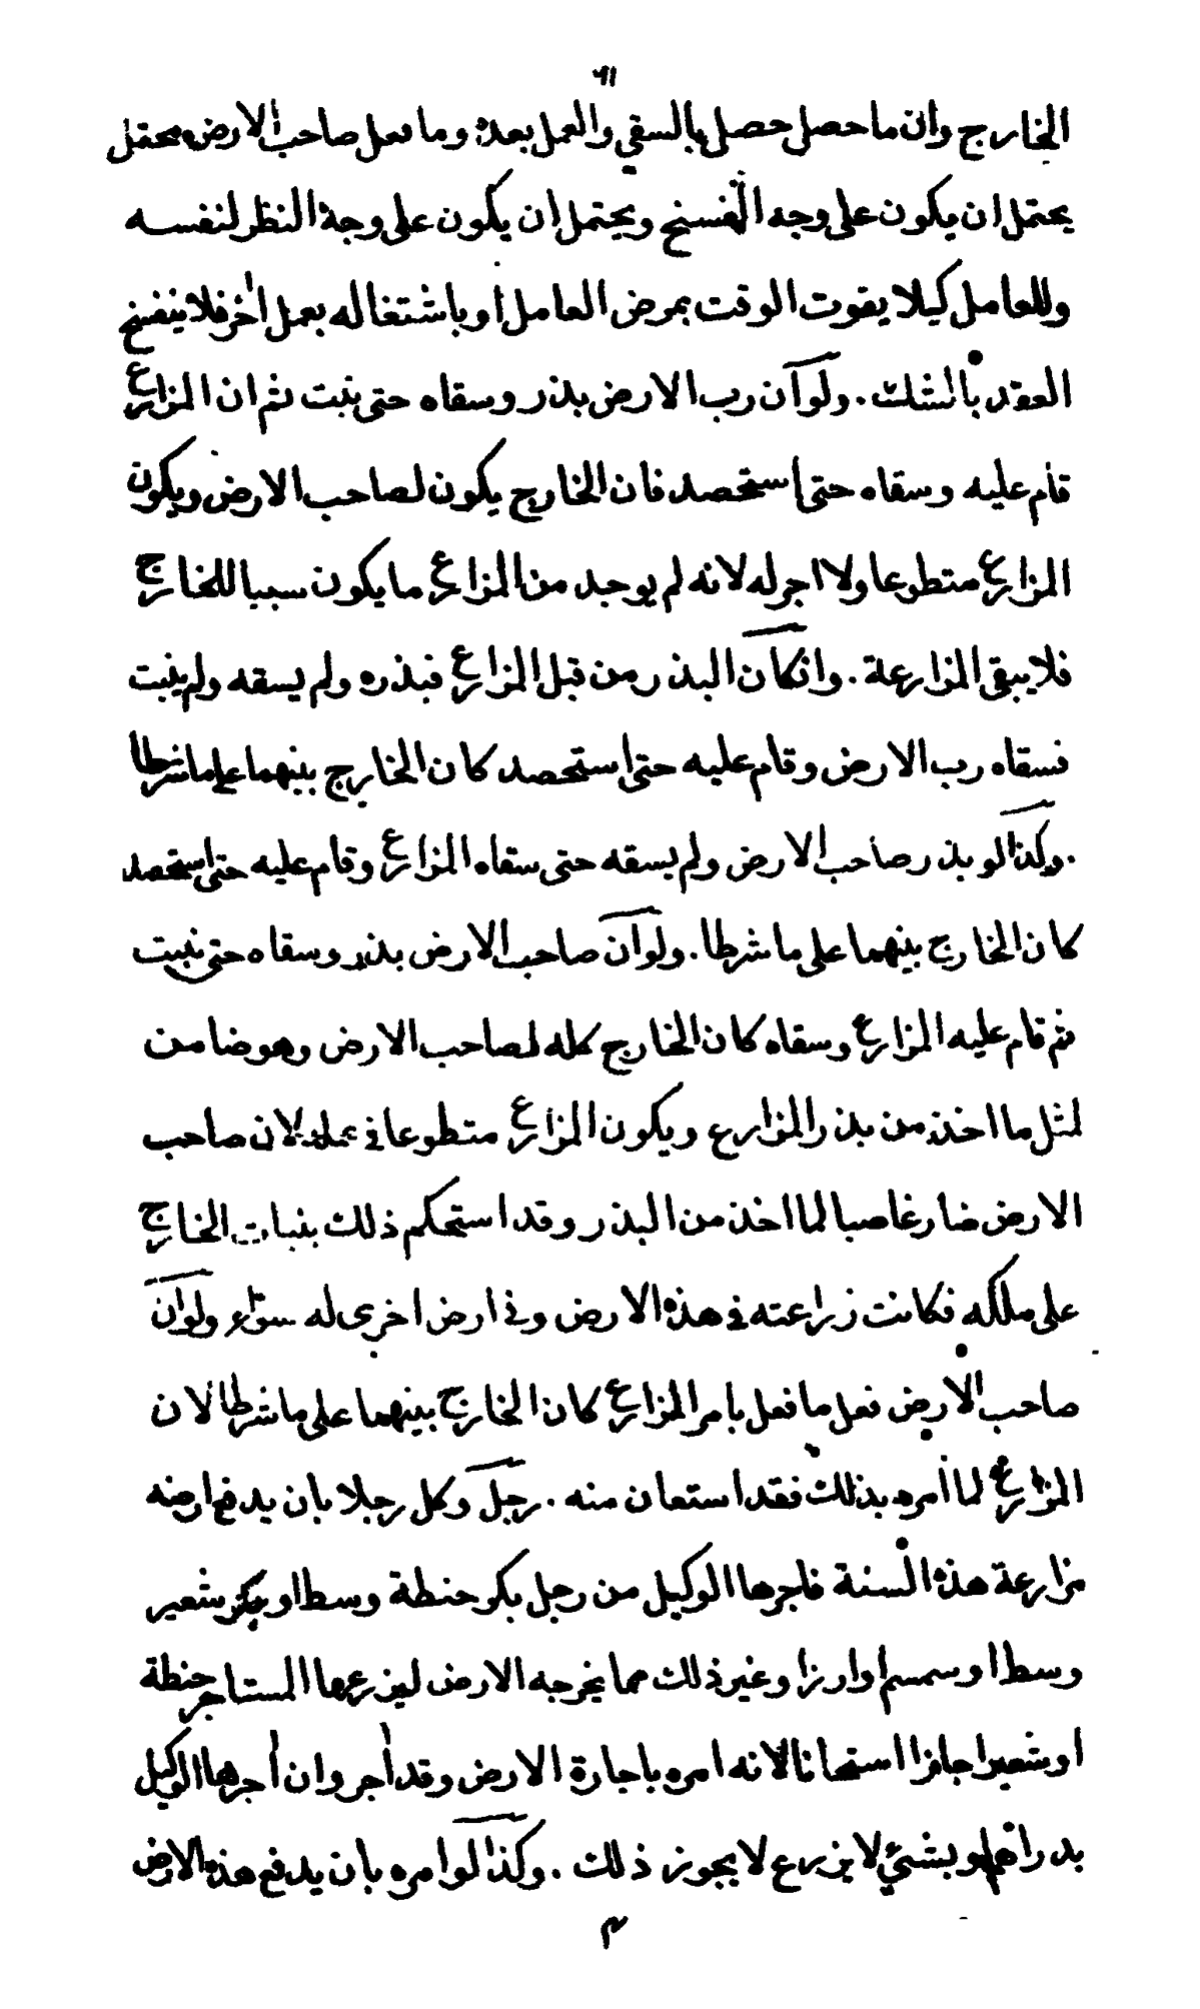 ٦١
الخارج وان ما حصل حصل بالسقي والعمل بعده وما فعل صاحب الارض محتمل
يحتمل ان يكون على وجه الفسخ ويحتمل ان يكون على وجه النظر لنفسه
وللعامل كيلا يفوت الوقت بمرض العامل او باشتغاله بعمل اخر فلا ينفسخ
العقد بالشك . ولو ان رب الارض بذر وسقاه حتى نبت ثم ان المزارع
قام عليه وسقاه حتى استحصد فان الخارج يكون لصاحب الارض ويكون
المزارع متطوعا ولا اجر له لانه لم يوجد من المزارع ما يكون سببا للخارج
فلا يبقى المزارعة . وان كان البذر من قبل المزارع فبذره ولم يسقه ولم ينبت
فسقاه رب الارض وقام عليه حتى استحصد كان الخارج بينهما على ما شرطا
. وكذا لو بذر صاحب الارض ولم يسقه حتى سقاه المزارع وقام عليه حتى استحصد
كان الخارج بينهما على ما شرطا . ولو ان صاحب الارض بذر وسقاه حتى نبت
ثم قام عليه المزارع وسقاه كان الخارج كله لصاحب الارض وهو ضامن
لمثل ما اخذ من بذر المزارع ويكون المزارع متطوعا في عمله لان صاحب
الارض صار غاصبا لما اخذ من البذر وقد استحكم ذلك بنبات الخارج
على ملكه فكانت زراعته في هذه الارض وفي ارض اخرى له سواء ولو ان
صاحب الارض فعل ما فعل بامر المزارع كان الخارج بينهما على ما شرطا لان
المزارع لما امره بذلك فقد استعان منه . رجل وكل رجلا بان يدفع ارضه
مزارعة هذه السنة فاجرها الوكيل من رجل بكر حنطة وسط او بكر شعير
وسط او سمسم او ارزا وغير ذلك مما يخرجه الارض ليزرعها المستاجر حنطة
او شعيرا جاز استحسانا لانه امره باجارة الارض وقد أجر وان أجرها الوكيل
بدراهم او بشئ لا يزرع لا يجوز ذلك . وكذا لو امره بان يدفع هذه الارض